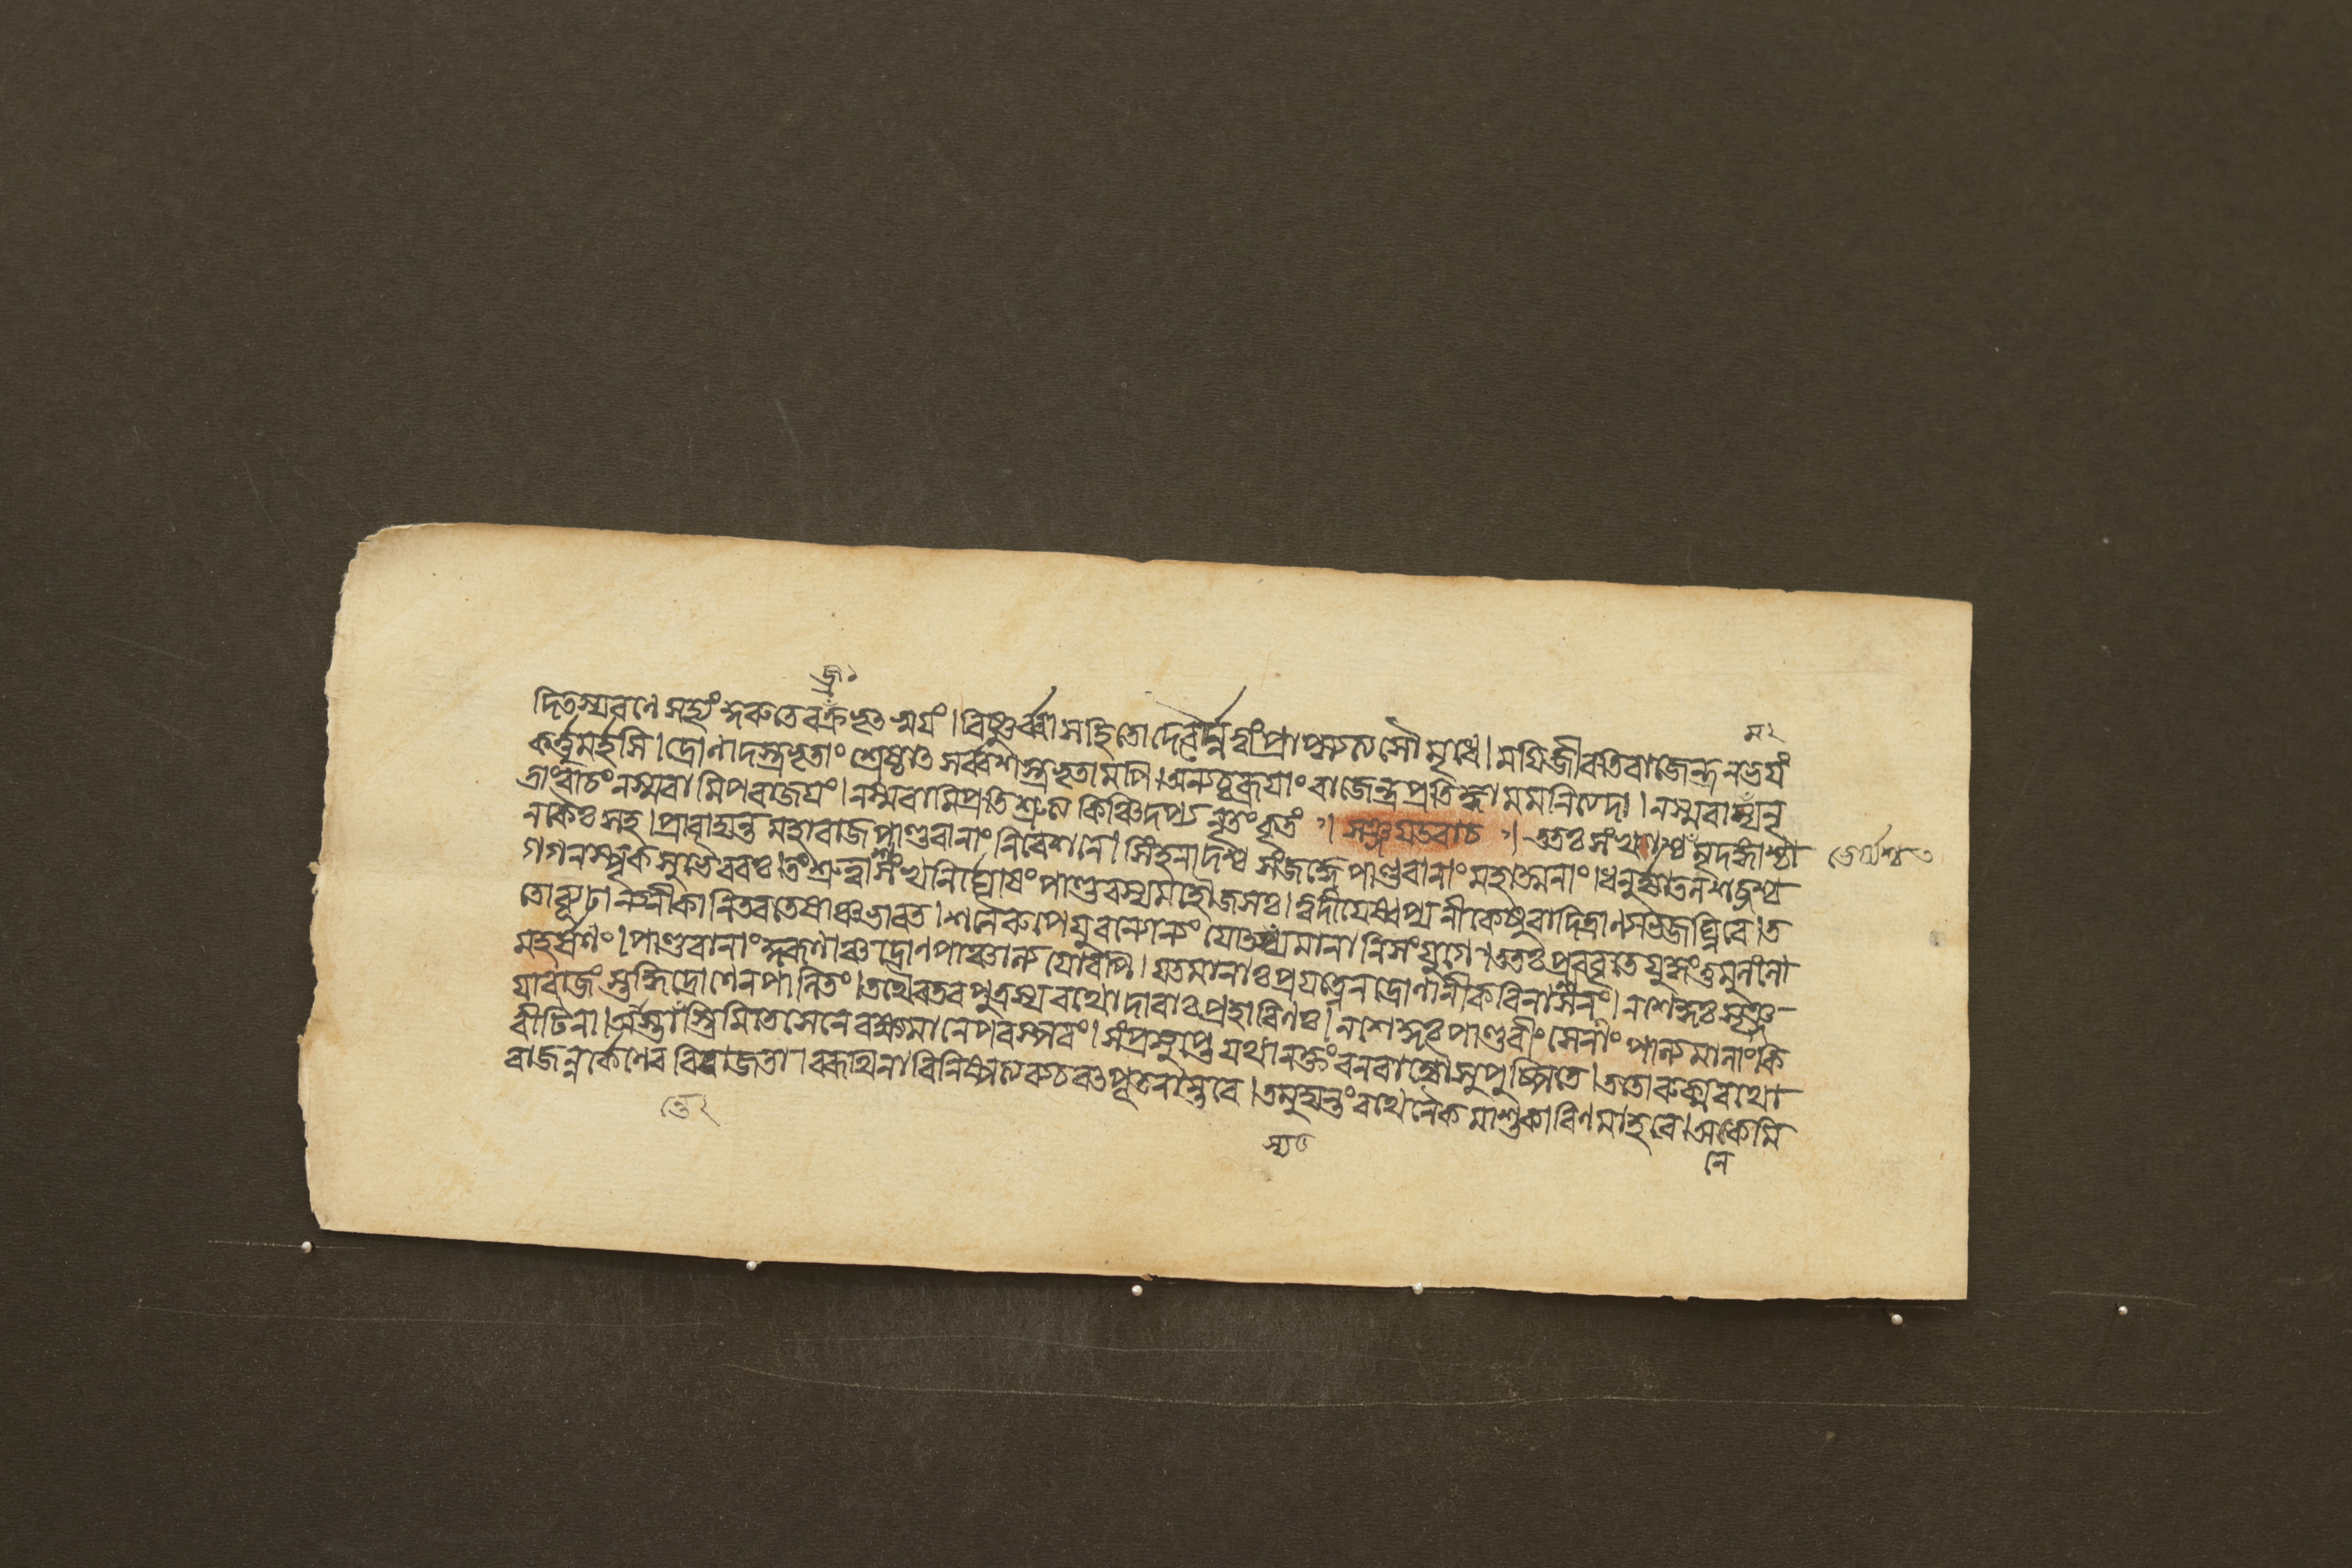 জ্র১
দিতস্যরণে সাহ্যংকুরুতেবজ্রভৃৎস্বয়ং। বিষ্ণুর্ব্বাসহিতোদেবৈর্ন্নত্বাংপ্রাপ্স্যত্যসৌমৃধে। ময়িজীবতিরাজেন্দ্রনভয়ং
ম২
কর্ত্তুমর্হসি। দ্রোণাদস্ত্রভৃতাংশ্রেষ্ঠাৎসর্ব্বশস্ত্রভৃতামপি। অন্যচ্চব্রূয়াংরাজেন্দ্রপ্রতিজ্ঞামমনিত্যদা। নস্মরাম্যনৃ
তাংবাচংনস্মরামিপরাজয়ং। নস্মরামিপ্রতিশ্রুত্যকিঞ্চিদপ্যনৃতংকৃতং। সঞ্জয়উবাচ। ততঃসংখাশ্চমৃদঙ্গাশ্চা ভের্য্যশ্চ
নকৈঃসহ। প্রাবাদ্যন্তমহারাজপাণ্ডবানাংনিবেশনে। সিংহনাদশ্চসংজজ্ঞেপাণ্ডবানাংমহাত্মনাং। ধনুর্জ্যাতলশব্দশ্চ
গগনস্পৃক্সুভৈরবঃ। তংশ্রুত্বাশংখনির্ঘোষংপাণ্ডবস্যমহৌজসঃ। ত্বদীয়েষ্বপ্যনীকেষুবাদিত্রাণ্যভিজঘ্নিরে। ত
তোব্যূঢান্যনীকানিতবতেষাঞ্চভারত। শনৈরুপেয়ুরন্যোন্যংযোৎস্যমানানিসংয়ুগে। ততঃপ্রববৃতেযুদ্ধংতুমুলংলো
মহর্ষণং। পাণ্ডবানাংকুরূণাঞ্চদ্রোণপাঞ্চাল্যয়োরপি। যতমানাঃপ্রযত্নেনদ্রোণানীকবিনাশনং। নশেকুঃসৃঞ্জ
য়ারাজংস্তদ্ধিদ্রোণেনপালিতং। তথৈবতবপুত্রস্যরথোদারাঃপ্রহারিণঃ। নশেকুঃপাণ্ডবীংসেনাংপাল্যমানাংকি
রীটিনা। আস্তাংস্তিমিতেসেনেরক্ষ্যমানেপরস্পরং। সংপ্রসুপ্তেযথানক্তংবনরাজ্যৌসুপুষ্পিতে। ততোরুক্মরথো
রাজন্নর্কেণেববিরাজতা। বরূথিনাবিনিষ্পত্যব্যচরৎপৃতনান্তরে। তমুদ্যন্তংরথেনৈকমাশুকারিণমাহবে। অনেকমি
নে